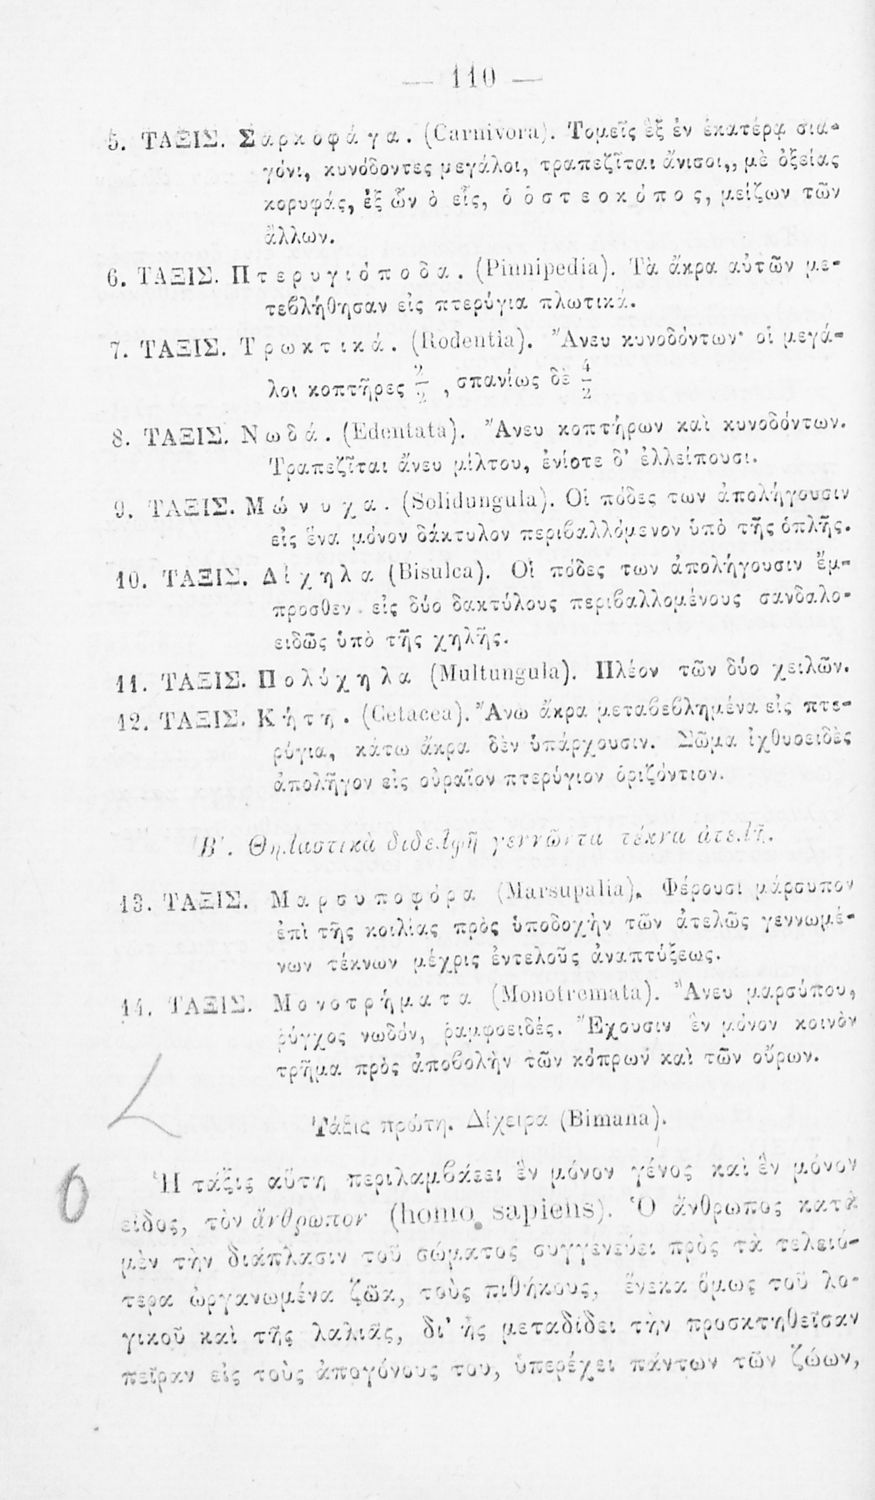 — 110 —
5. ΤΑΞΙΣ. Σαρκοφάγα. (Carnivora). Τομεῖς ἓξ ἐν ἑκατέρᾳ σια-
γόνι, κυνόδοντες μεγάλοι, τραπεζῖται ἄνισοι,, μὲ ὀξείας
κορυφάς, ἐξ ὧν ὁ εἷς, ὁ ὀστεοκόπος, μείζων τῶν
ἄλλων.
6. ΤΑΞΙΣ. Πτερυγιόποδα. (Pinnipedia). Τὰ ἄκρα αὐτῶν με-
τεβλήθησαν εἰς πτερύγια πλωτικά.
7. ΤΑΞΙΣ. Τρωκτικά. (Rodentia). Ἄνευ κυνοδόντων· οἱ μεγά-
λοι κοπτῆρες 2/2, σπανίως δὲ 4/2
8. ΤΑΞΙΣ. Νωδά. (Edentata). Ἄνευ κοπτήρων καὶ κυνοδόντων.
Τραπεζῖται ἄνευ μίλτου, ἐνίοτε δ' ἐλλείπουσι.
9. ΤΑΞΙΣ. Μώνυχα. (Solidungula). Οἱ πόδες των ἀπολήγουσιν
εἰς ἕνα μόνον δάκτυλον περιβαλλόμενον ὑπὸ τῆς ὁπλῆς.
10. ΤΑΞΙΣ. Δίχηλα (Bisulca). Οἱ πόδες των ἀπολήγουσιν ἔμ-
προσθεν εἰς δύο δακτύλους περιβαλλομένους σανδαλο-
ειδῶς ὑπὸ τῆς χηλῆς.
11. ΤΑΞΙΣ. Πολύχηλα (Multungula). Πλέον τῶν δύο χειλῶν.
12. ΤΑΞΙΣ. Κήτη. (Cetacea). Ἄνω ἄκρα μεταβεβλημένα εἰς πτε-
ρύγια, κάτω ἄκρα δὲν ὑπάρχουσιν. Σῶμα ἰχθυοειδὲς
ἀπολῆγον εἰς οὐραῖον πτερύγιον ὁριζόντιον.
Β'. Θηλαστικὰ διδελφῆ γεννῶντα τέκνα ἀτελῆ.
13. ΤΑΞΙΣ. Μαρσυποφόρα (Marsupalia). Φέρουσι μάρσυπον
ἐπὶ τῆς κοιλίας πρὸς ὑποδοχὴν τῶν ἀτελῶς γεννωμέ-
νων τέκνων μέχρις ἐντελοῦς ἀναπτύξεως.
14. ΤΑΞΙΣ. Μονοτρήματα (Monotremata). Ἄνευ μαρσύπου,
ῥύγχος νωδόν, ῥαμφοειδές. Ἔχουσιν ἓν μόνον κοινὸν
τρῆμα πρὸς ἀποβολὴν τῶν κόπρων καὶ τῶν οὔρων.
Τάξις πρώτη. Δίχειρα (Bimana).
Ἡ τάξις αὕτη περιλαμβάεει ἓν μόνον γένος καὶ ἓν μόνον
εἶδος, τὸν ἄνθρωπον (homo sapiens). Ὁ ἄνθρωπος κατὰ
μὲν τὴν διάπλασιν τοῦ σώματος συγγενεύει πρὸς τὰ τελειό-
τερα ὠργανωμένα ζῶα, τοὺς πιθήκους, ἕνεκα ὅμως τοῦ λο-
γικοῦ καὶ τῆς λαλιᾶς, δι' ἧς μεταδίδει τὴν προσκτηθεῖσαν
πεῖραν εἰς τοὺς ἀπογόνους του, ὑπερέχει πάντων τῶν ζώων,